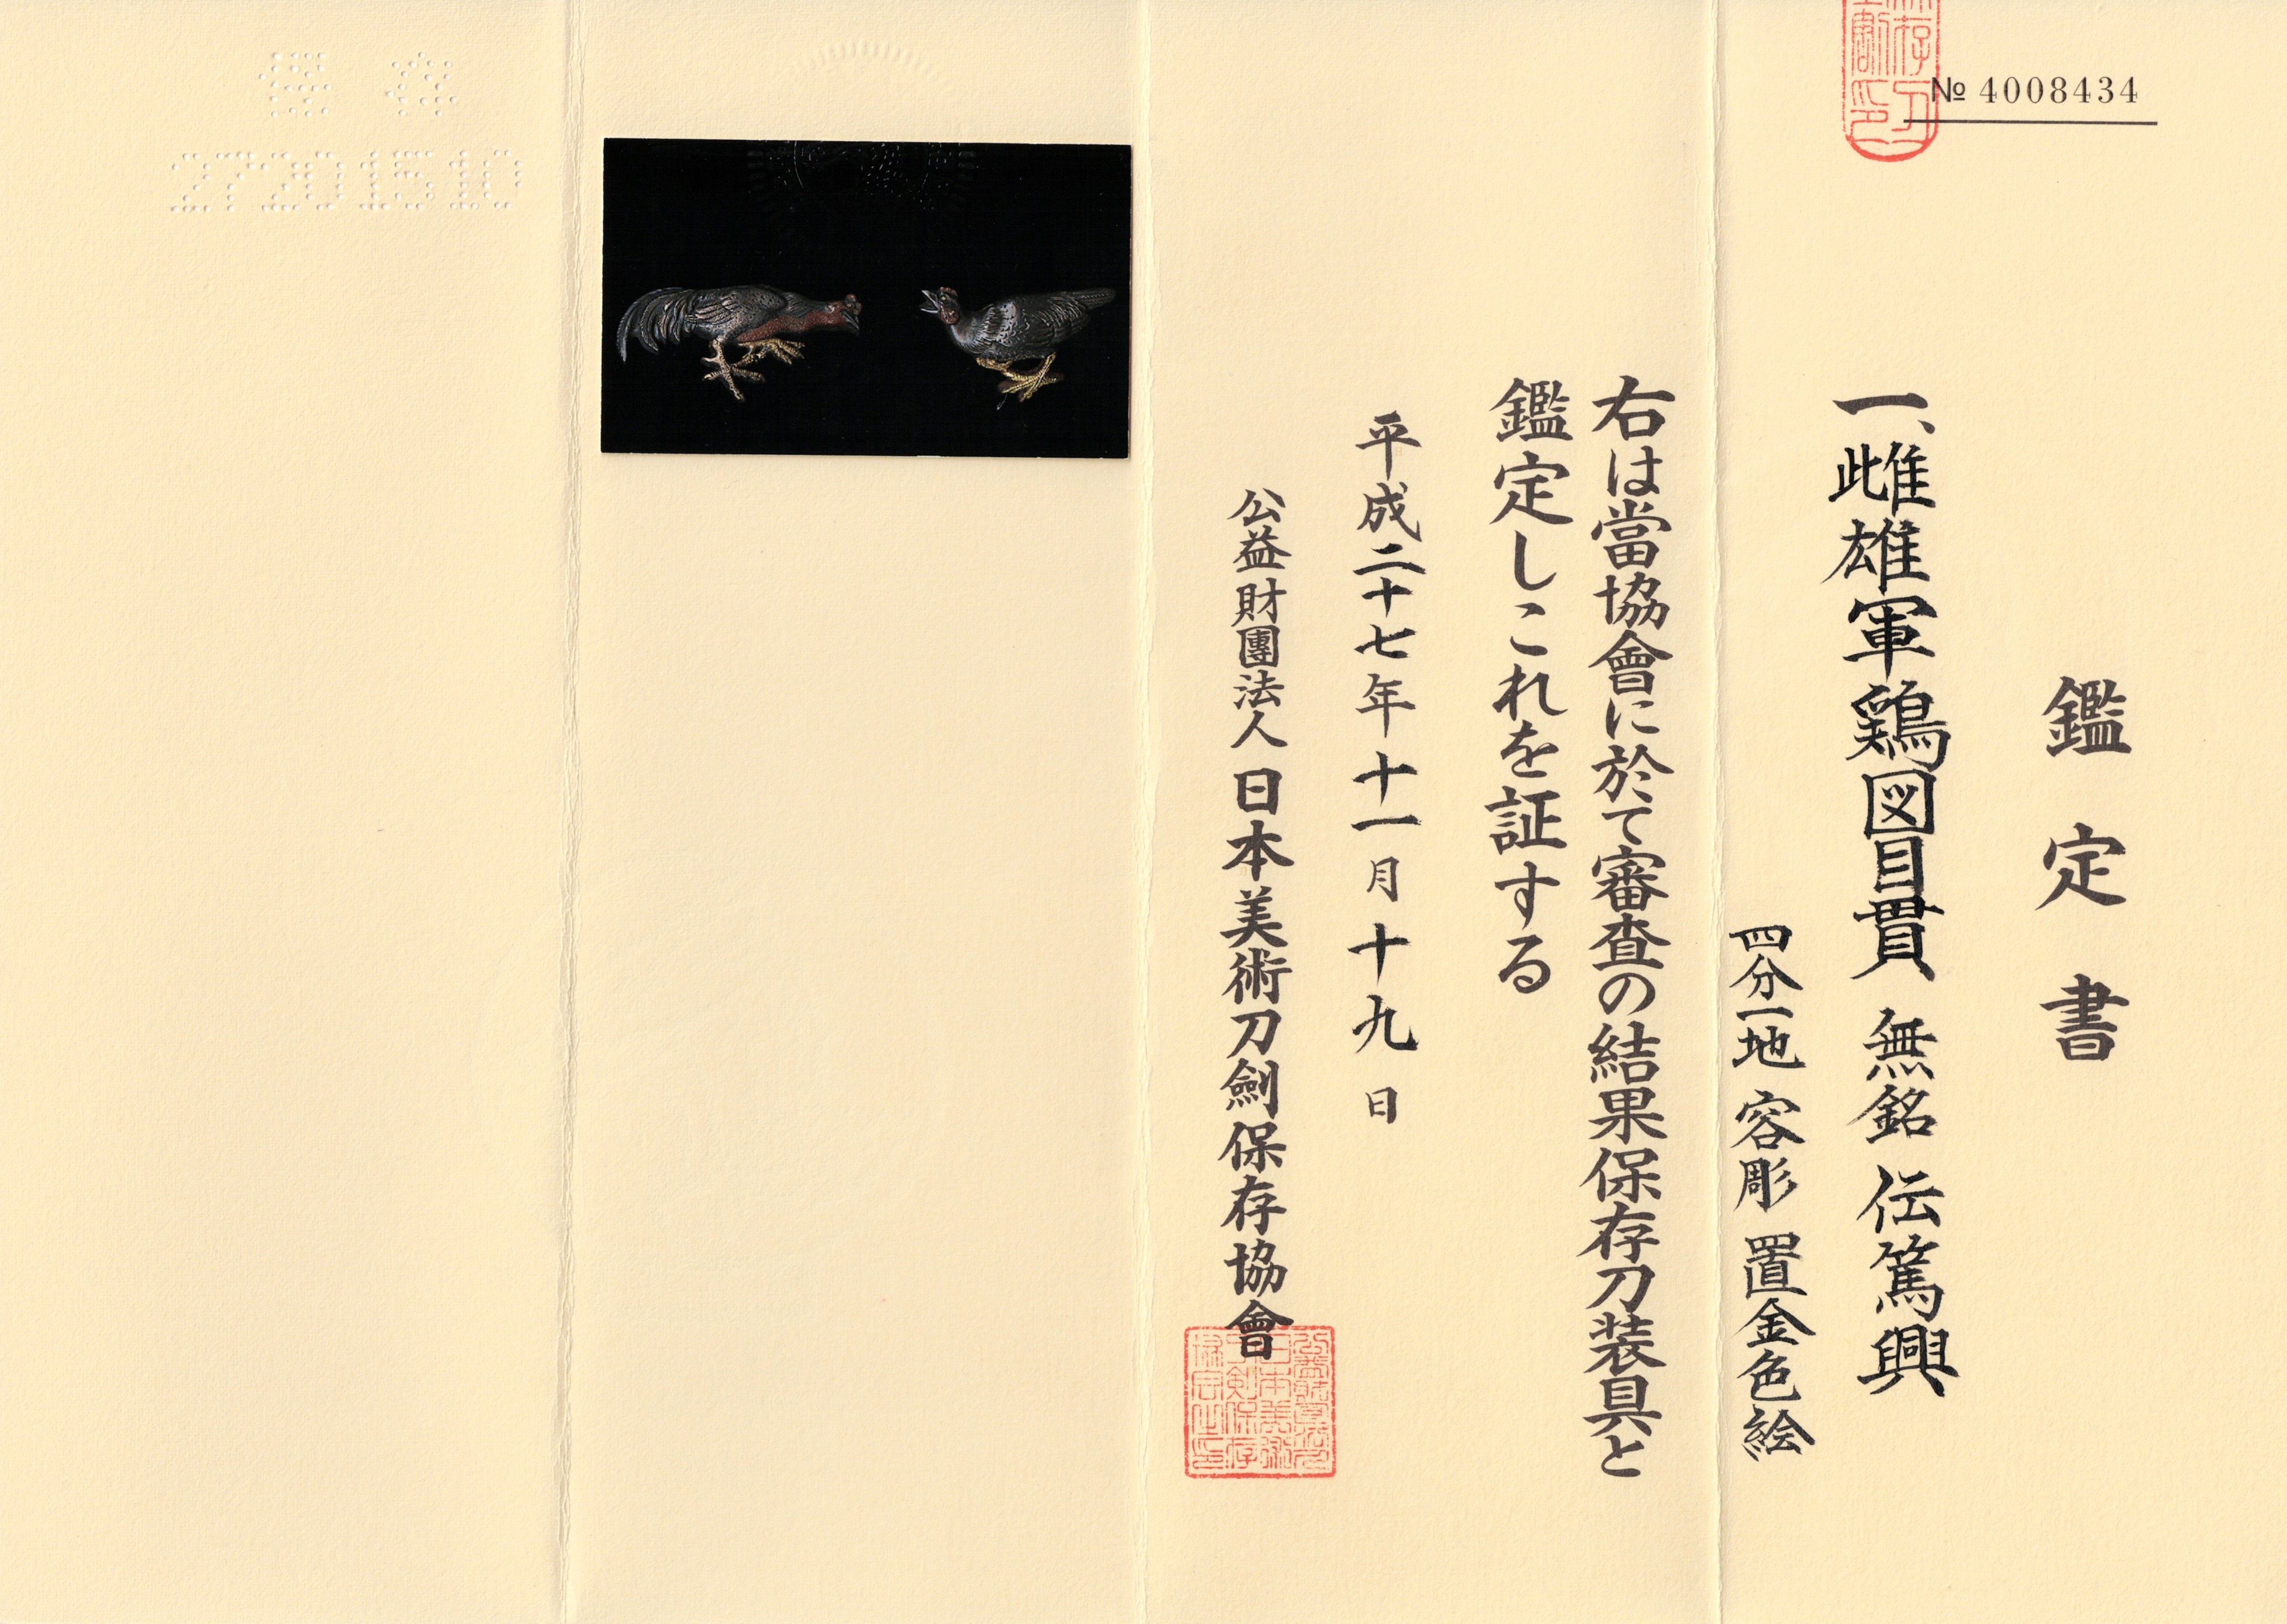 № 4008434
鑑定書
一、雌雄軍鶏図目貫 無銘 伝篤興
四分一地 容彫 置金色絵
右は當協會に於て審査の結果保存刀装具と
鑑定しこれを証する
平成二十七年十一月十九日
公益財團法人 日本美術刀劍保存協會
保存
27201510